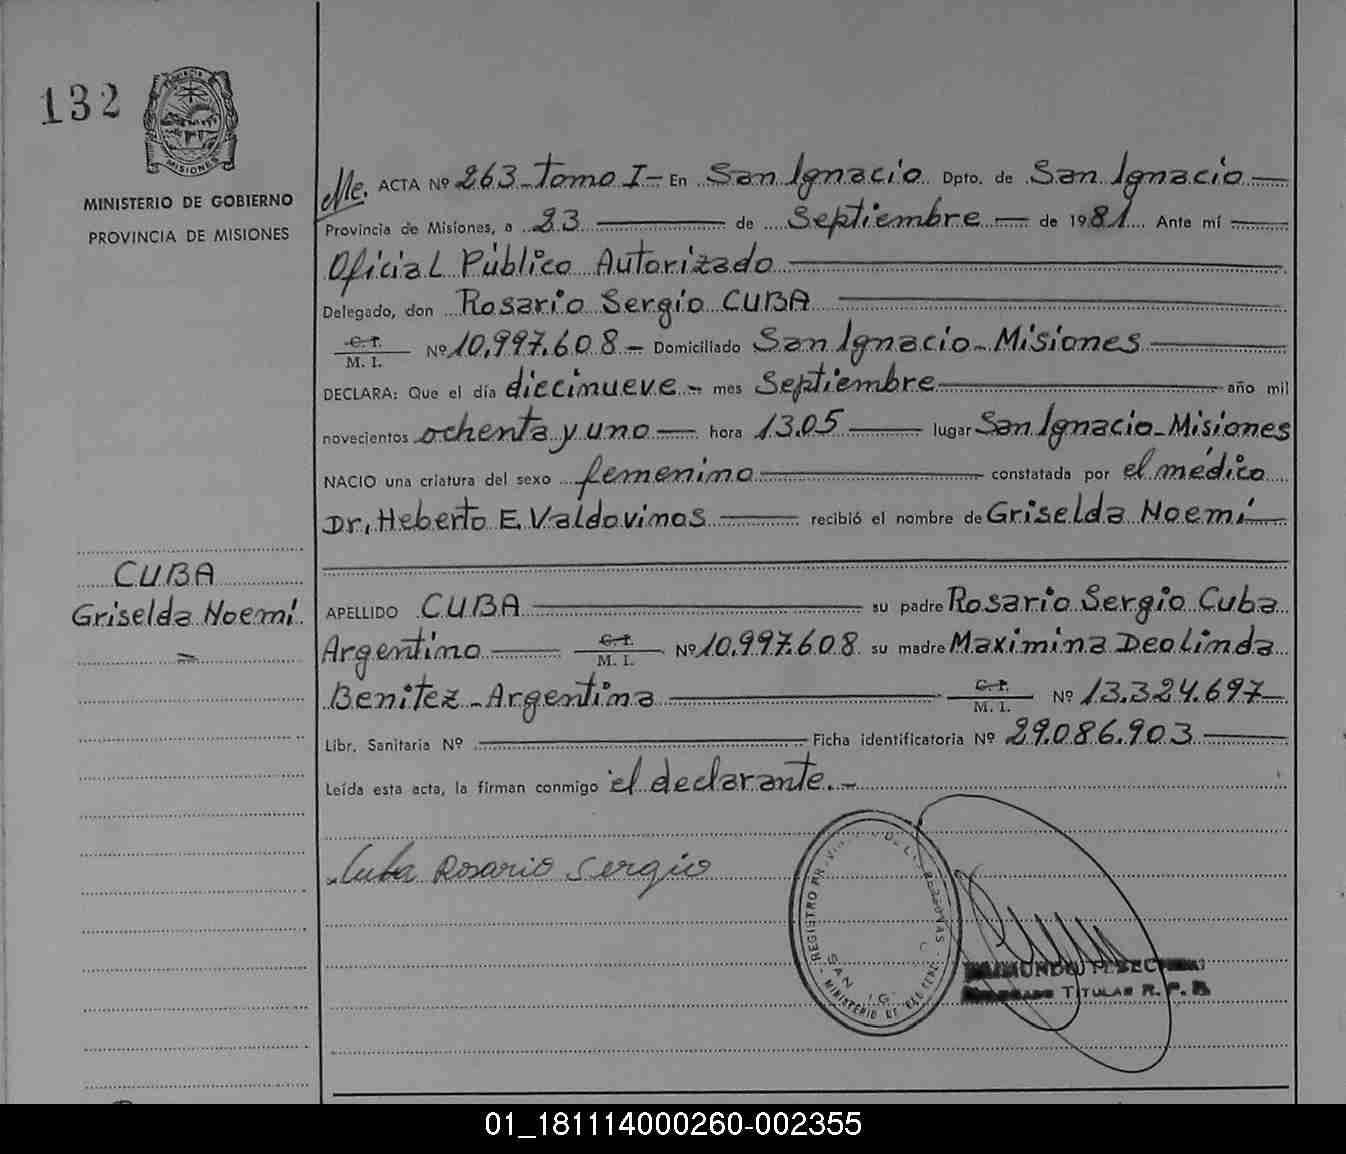 132
MISIONES
MINISTERIO DE GOBIERNO
PROVINCIA DE MISIONES
CUBA
Griselda Noemí
ACTA Nº 263 - Tomo I - En San Ignacio Dpto. de San Ignacio
Provincia de Misiones, a 23 de Septiembre de 1981 Ante mí
Oficial Público Autorizado
Delegado, don Rosario Sergio CUBA
C. I.
M. I. Nº 10.997.608 - Domiciliado San Ignacio - Misiones
DECLARA: Que el día diecinueve - mes Septiembre año mil
novecientos ochenta y uno hora 13.05 lugar San Ignacio - Misiones
NACIO una criatura del sexo femenino constatada por el médico
Dr. Heberto E. Valdovinos recibió el nombre de Griselda Noemí
APELLIDO CUBA su padre Rosario Sergio Cuba
Argentino C. I. M. I. Nº 10.997.608 su madre Maximina Deolinda
Benitez - Argentina C. I. M. I. Nº 13.324.697
Libr. Sanitaria Nº Ficha identificatoria Nº 29.086.903
Leída esta acta, la firman conmigo el declarante.-
Cuba Rosario Sergio
REGISTRO DE LAS PERSONAS
SAN IG
MINISTERIO DE
TITULAR R. P.
01_181114000260-002355